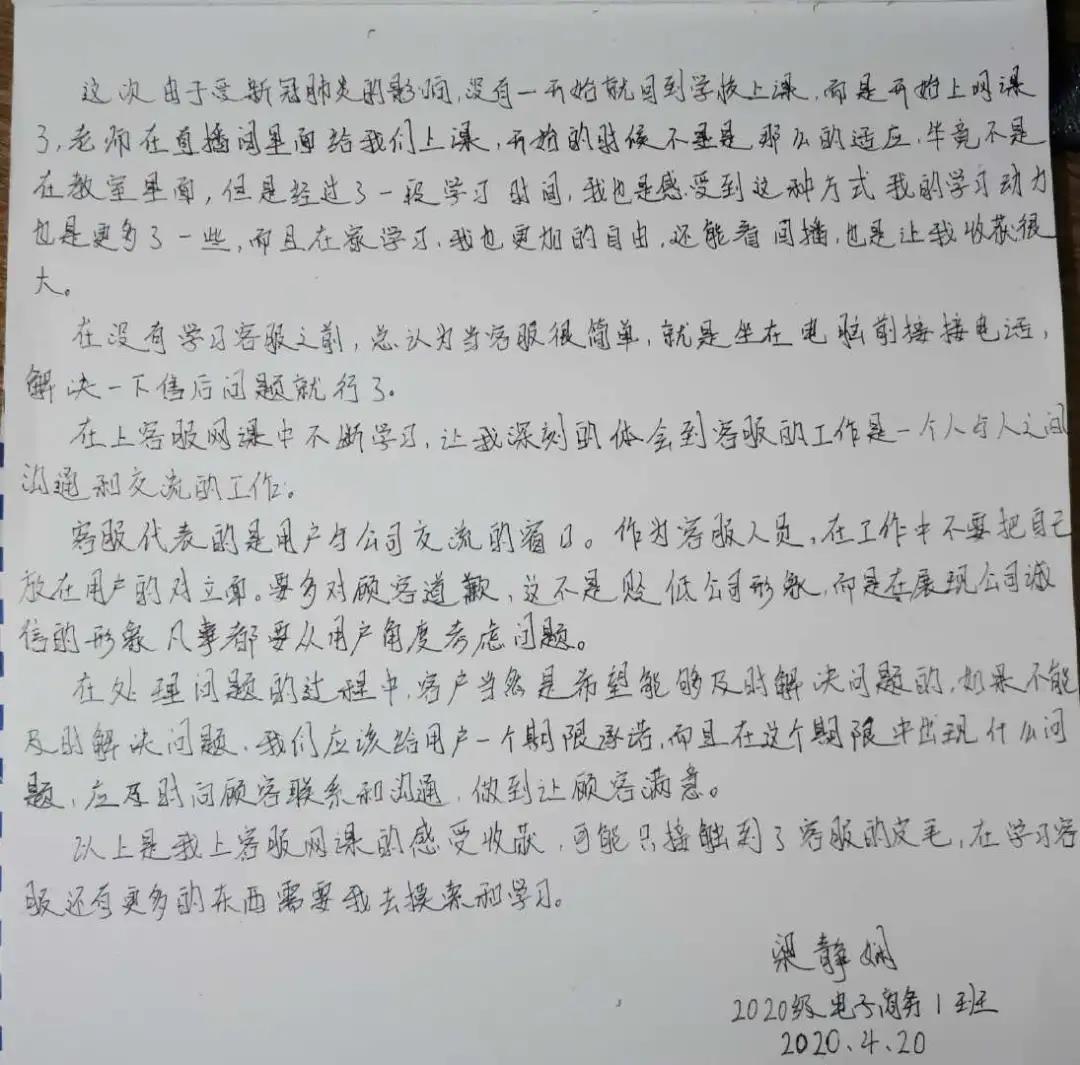 这次由于受新冠肺炎的影响,没有一开始就回到学校上课,而是开始上网课
了,老师在直播间里面给我们上课,开始的时候不是是那么的适应,毕竟不是
在教室里面,但是经过了一段学习时间,我也是感受到这种方式我的学习动力
也是更多了一些,而且在家学习,我也更加的自由,还能看回播,也是让我收获很
大。
在没有学习客服之前,总认为当客服很简单,就是坐在电脑前接接电话,
解决一下售后问题就行了。
在上客服网课中不断学习,让我深刻的体会到客服的工作是一个人与人之间
沟通和交流的工作。
客服代表的是用户与公司交流的窗口。作为客服人员,在工作中不要把自己
放在用户的对立面。要多对顾客道歉,这不是贬低公司形象,而是在展现公司诚
信的形象 凡事都要从用户角度考虑问题。
在处理问题的过程中,客户当然是希望能够及时解决问题的,如果不能
及时解决问题,我们应该给用户一个期限承诺,而且在这个期限中出现什么问
题,应及时向顾客联系和沟通,做到让顾客满意。
以上是我上客服网课的感受收获,可能只接触到了客服的皮毛,在学习客
服还有更多的东西需要我去摸索和学习。
梁静娴
2020级电子商务1班
2020.4.20